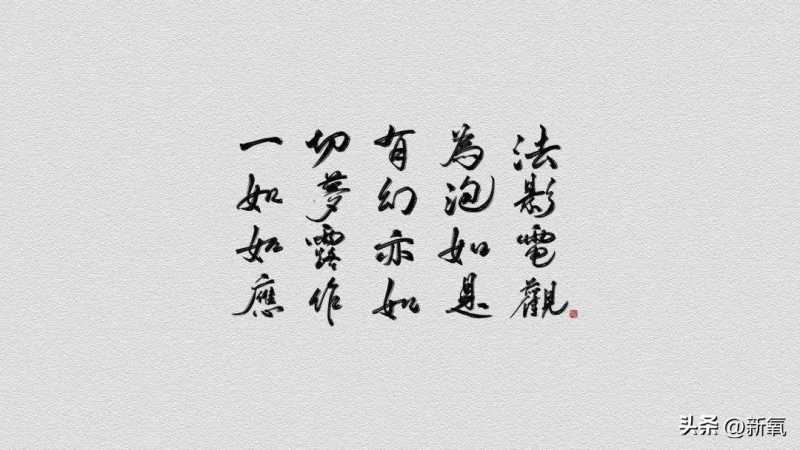 一切有為法
如夢幻泡影
如露亦如電
應作如是觀
头条 @新氧